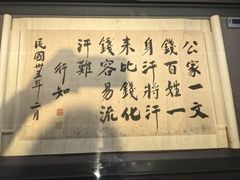 公家一文
錢百姓一
身汗將汗
来比錢化
錢容易流
汗難
行知
民國卅年二月